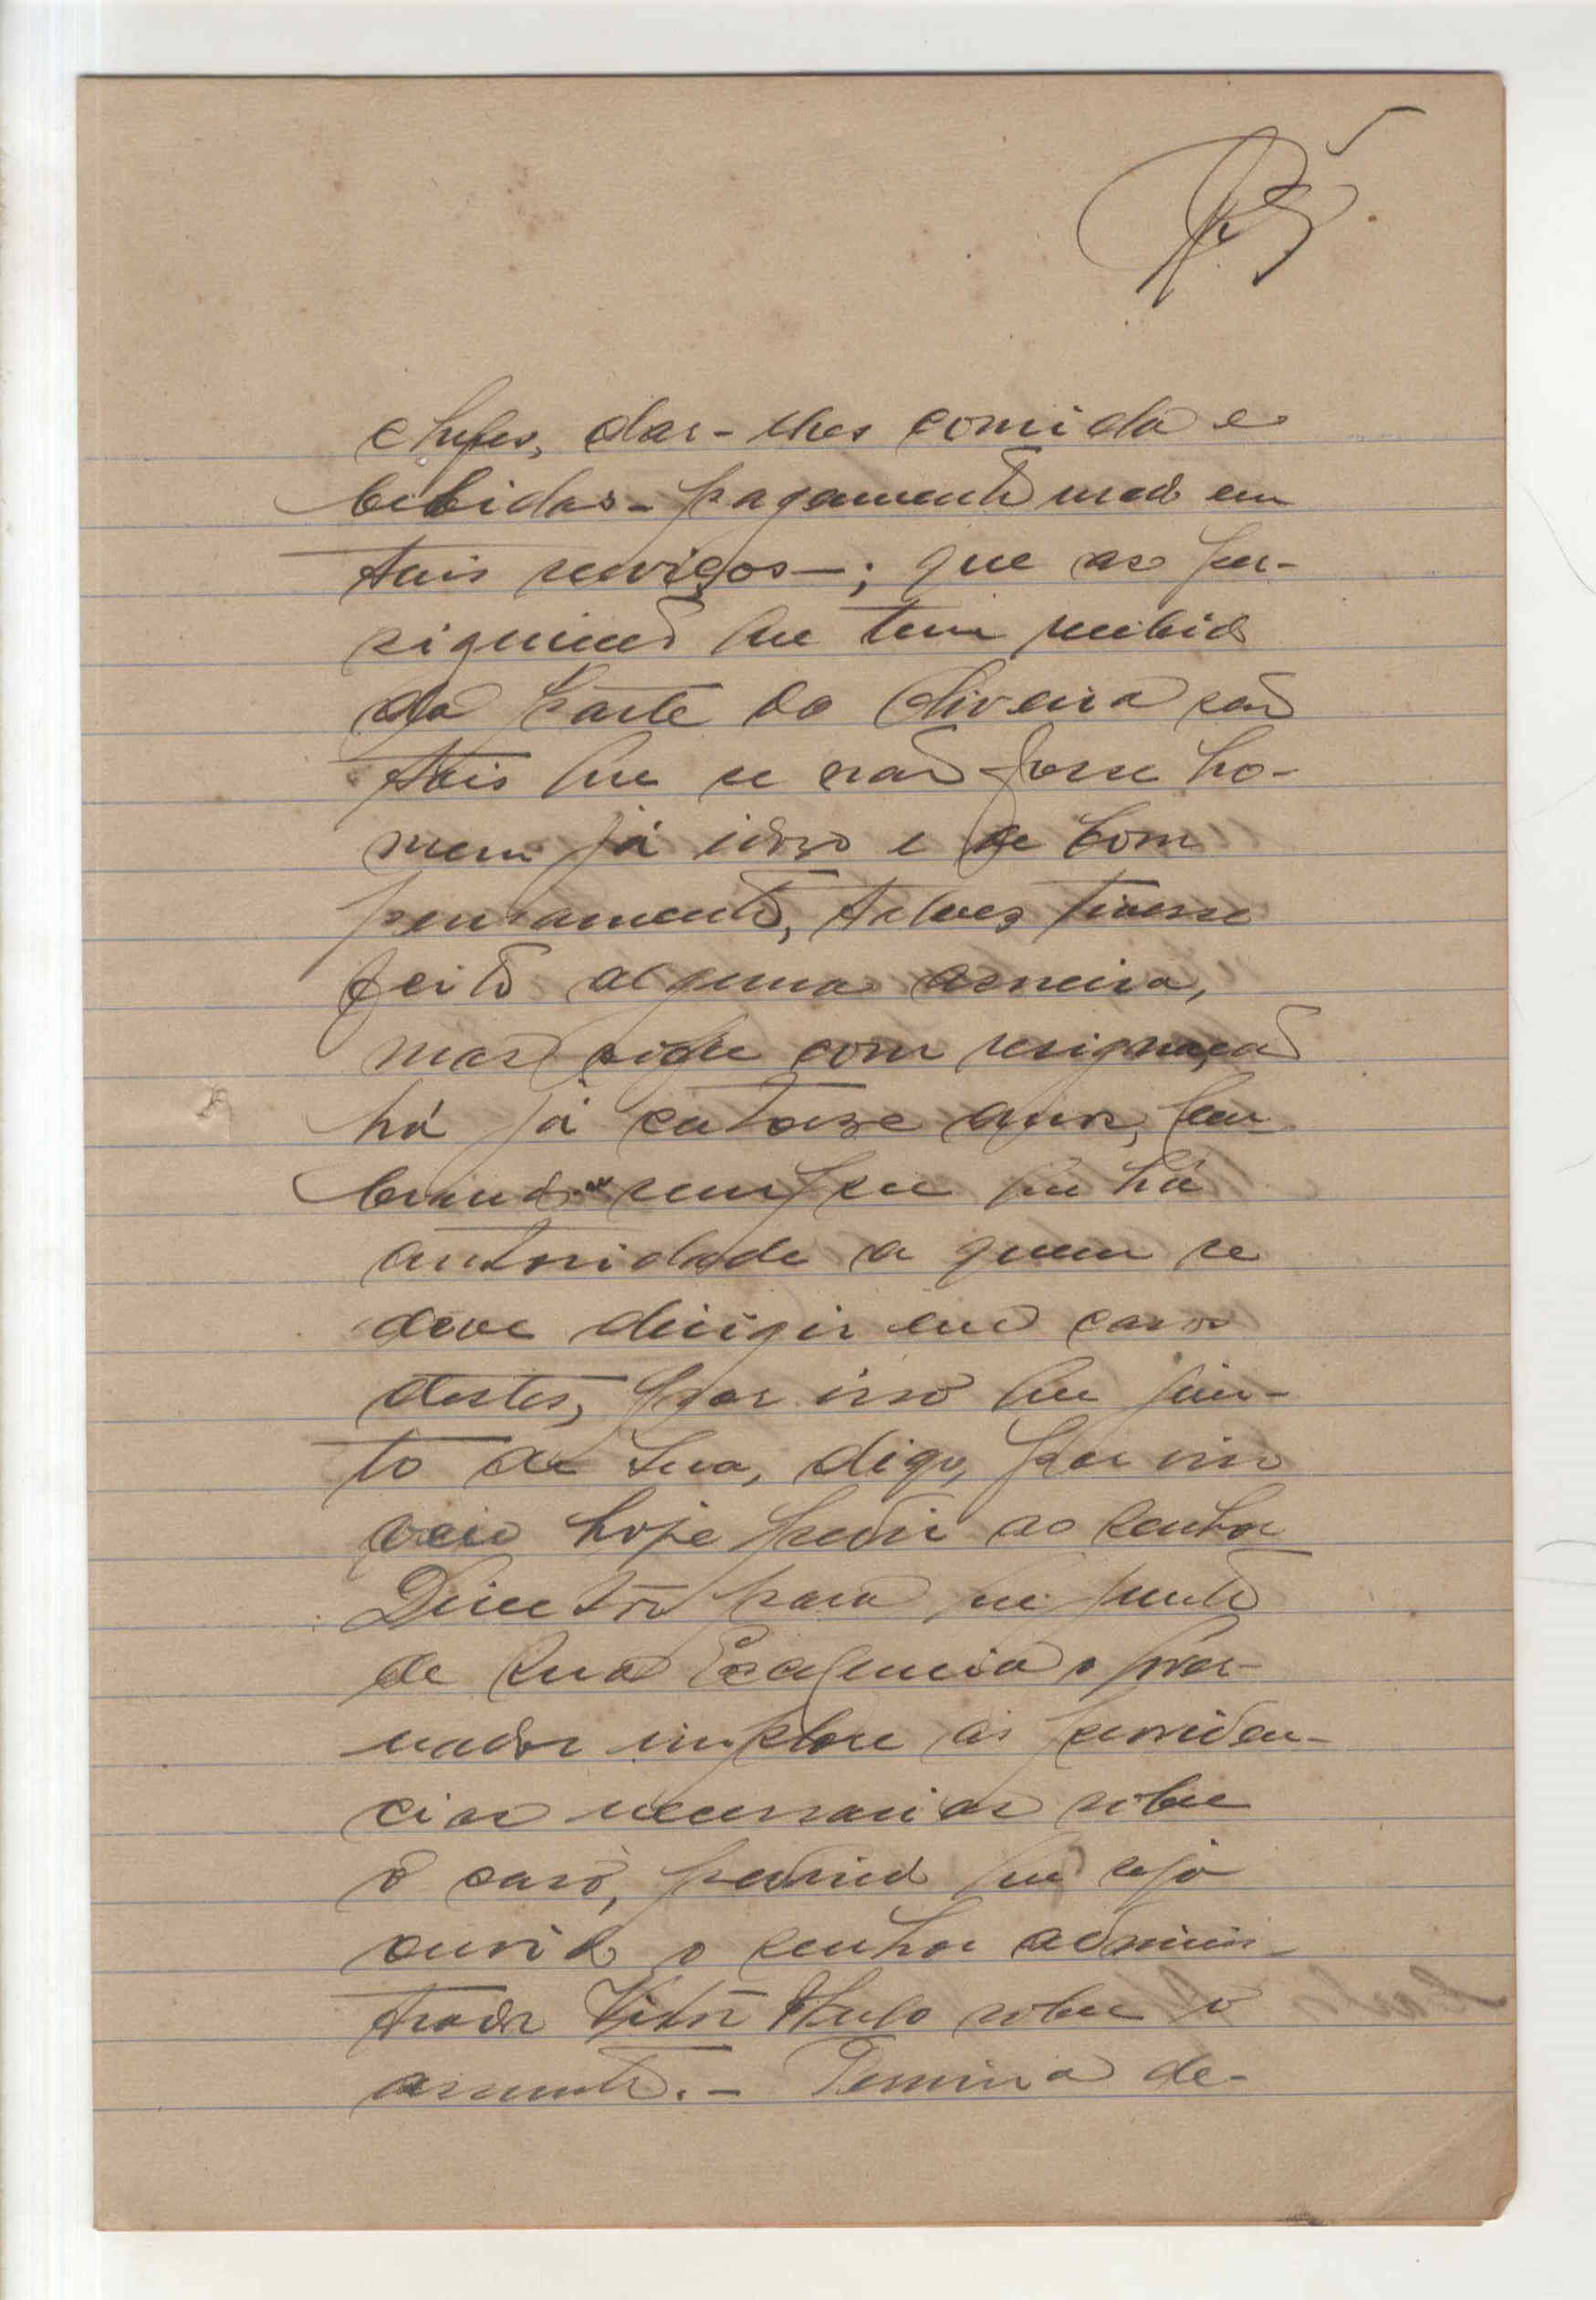 5
chefes, dar-lhes comida e
bebidas - pagamento usado em
tais serviços -; que as per-
siguições que tem recebido
da parte do Oliveira são
tais que se não fosse ho-
mem já idoso e de bom
pensamento, talvez tivesse
feito alguma asneira,
mas sofre com resignação
há já catorze anos, lem-
brando-se sempre que há
autoridade a quem se
deve dirigir em casos
destes, por isso que jun-
to de Sua, digo, por isso
veio hoje pedir ao senhor
Director para que junto
de Sua Excelencia o Gover-
nador implore as providen-
cias necessarias sobre
o caso, pedindo que seja
ouvido o senhor adminis-
trador Vitor Hugo sobre o
assunto. - Termina de-